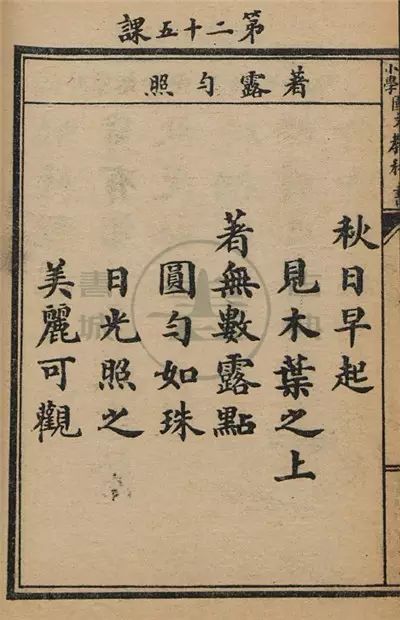 第二十五課
著露勻照
小學國文教科書
秋日早起
見木葉之上
著無數露點
圓勻如珠
日光照之
美麗可觀